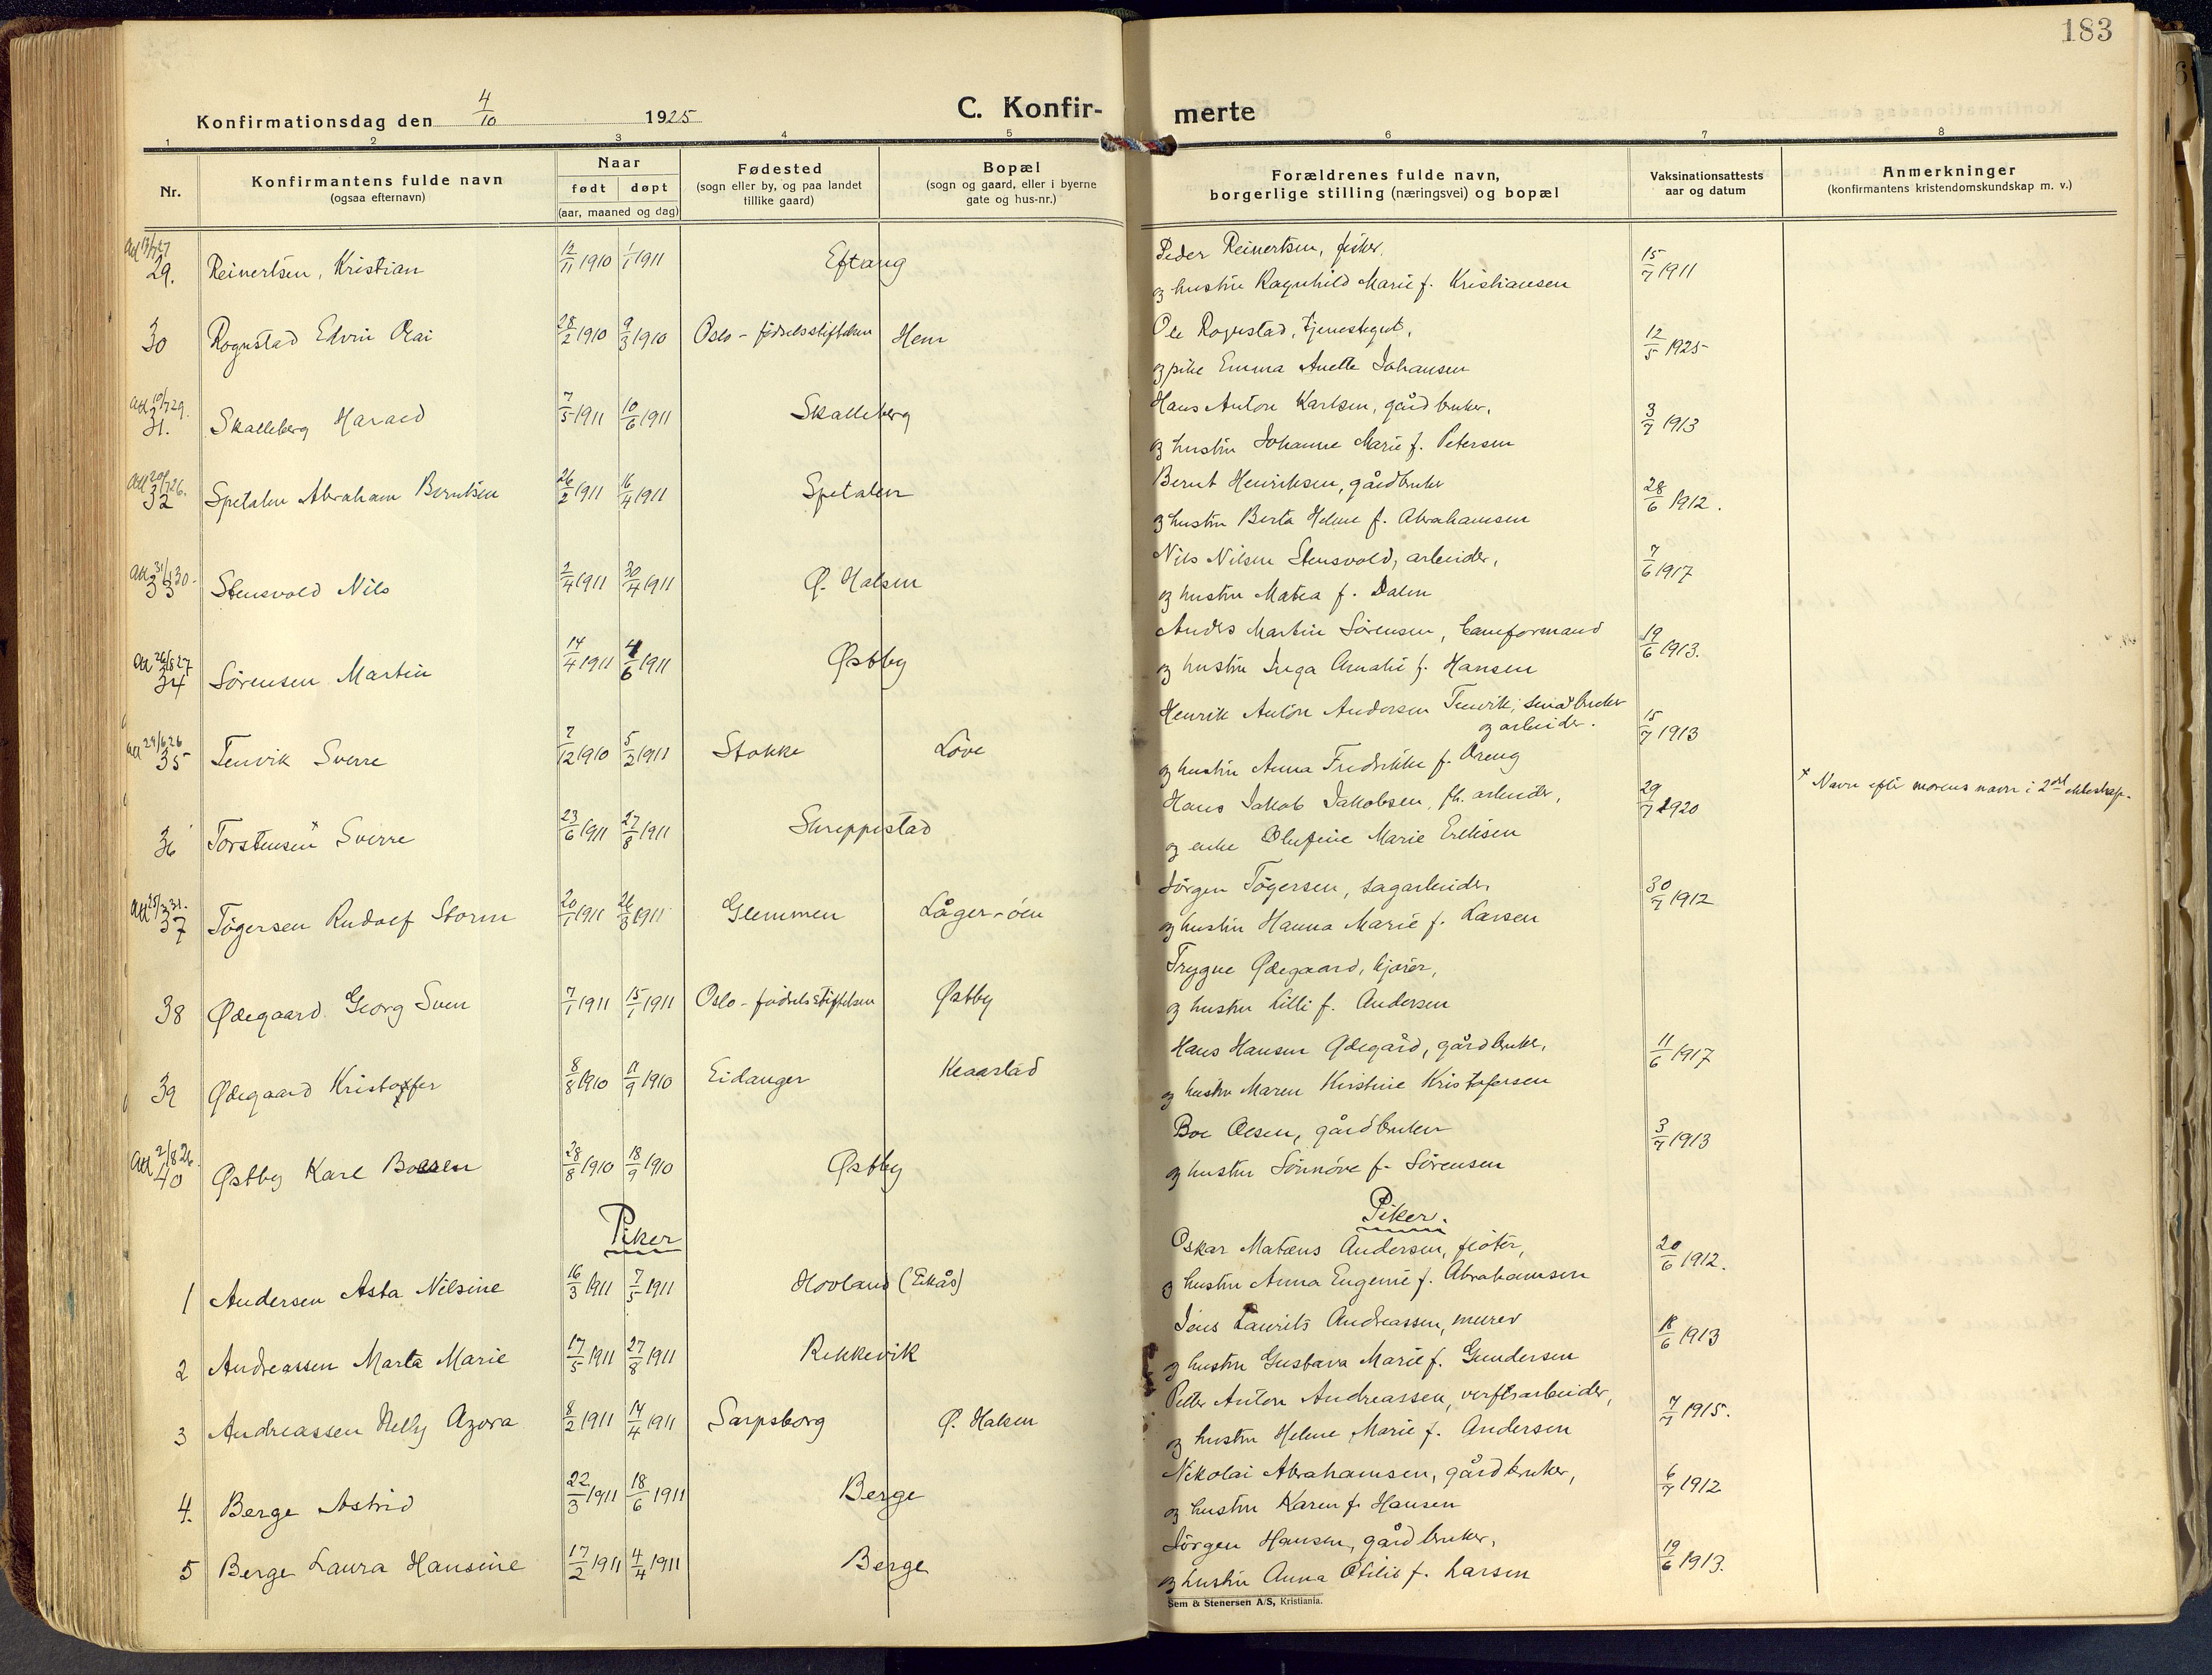 183
Konfirmationsdag den 4/10 1925 C. Konfir- merte
1 2 3 4 5 6 7 8
Nr. Konfirmantens fulde navn (ogsaa efternavn) Naar født døpt (aar, maaned og dag) Fødested (sogn eller by, og paa landet tillike gaard) Bopæl (sogn og gaard, eller i byerne gate og hus-nr.) Forældrenes fulde navn, borgerlige stilling (næringsvei) og bopæl Vaksinationsattests aar og datum Anmerkninger (konfirmantens kristendomskundskap m. v.)
29. Reinertsen, Kristian 12/11 1910 1/1 1911 Eftang Peder Reinertsen, fisker, 15/7 1911
og hustru Ragnhild Marie f. Kristiansen
30 Rognstad Edvin 28/2 1910 9/3 1910 Oslo - fødselsstiftelsen Hem Ole Rognstad, tjenestegut, 12/5 1925
og pike Emma Anette Johansen
Att 10/7 29. 31. Skalleberg Harald 7/5 1911 10/6 1911 Skalleberg Hans Anton Karlsen, gårdbruker, 3/7 1913
og hustru Johanne Marie f. Petersen
Att 20/7 26. 32 Spetalen Abraham Berntsen 26/2 1911 16/4 1911 Spetalen Bernt Henriksen, gårdbruker 28/6 1912.
og hustru Berta Helene f. Abrahamsen
Att 31/1 30. 33 Stensvold Nils 2/4 1911 30/4 1911 Ø. Halsen Nils Nilsen Stensvold, arbeider, 7/6 1917
og hustru Matea f. Dalen
Att 26/8 27 34 Sørensen Martin 14/4 1911 4/6 1911 Østby Anders Martin Sørensen, baneformand 19/6 1913.
og hustru Inga Amalie f. Hansen
Att 29/6 26 35 Tenvik Sverre 7/12 1910 5/2 1911 Stokke Løve Henrik Anton Andersen Tenvik, småbruker og arbeider. 15/7 1913
og hustru Anna Fredrikke f. Øreng
36 Torstensen × Sverre 23/6 1911 27/8 1911 Skreppestad Hans Jakob Jakobsen, fh. arbeider, 29/7 1920 × Navn efter morens navn i 2det ekteskap.
og enke Olufine Marie Eriksen
Att 25/3 31. 37 Tögersen Rudolf Storm 20/1 1911 26/3 1911 Glemmen Låger-öen Jörgen Tögersen, sagarbeider, 30/7 1912
og hustru Hanna Marie f. Larsen
38 Ødegaard Georg Sven 7/1 1911 15/1 1911 Oslo - fødselsstiftelsen Østby Trygve Ødegaard, kjører,
og hustru Lilli f. Andersen
39 Ødegaard Kristoffer 8/8 1910 11/9 1910 Eidanger Klaastad Hans Hansen Ødegård, gårdbruker, 11/6 1917
og hustru Maren Kirstine Kristofersen
Att 2/8 26. 40 Østby Karl Boesen 28/8 1910 18/9 1910 Østby Boe Olsen, gårdbruker 3/7 1913
og hustru Sönnöve f. Sörensen
Piker Piker.
1 Andersen Asta Nilsine 16/3 1911 7/5 1911 Hovland (Eikås) Oskar Matæus Andersen, fløter, 20/6 1912.
og hustru Anna Eugenie f. Abrahamsen
2 Andreassen Marta Marie 17/5 1911 27/8 1911 Rekkevik Jens Laurits Andreassen, murer 18/6 1913
og hustru Gustava Marie f. Gundersen
3 Andreassen Nelly Azora 8/2 1911 14/4 1911 Sarpsborg Ø. Halsen Peter Anton Andreassen, verftsarbeider, 7/7 1915.
og hustru Helene Marie f. Andersen
4. Berge Astrid 22/3 1911 18/6 1911 Berge Nikolai Abrahamsen, gårdbruker, 6/7 1912
og hustru Karen f. Hansen
5 Berge Laura Hansine 17/2 1911 4/4 1911 Berge Jörgen Hansen, gårdbruker, 19/6 1913.
og hustru Anna Otilie f. Larsen
Sem & Stenersen A/S, Kristiania.